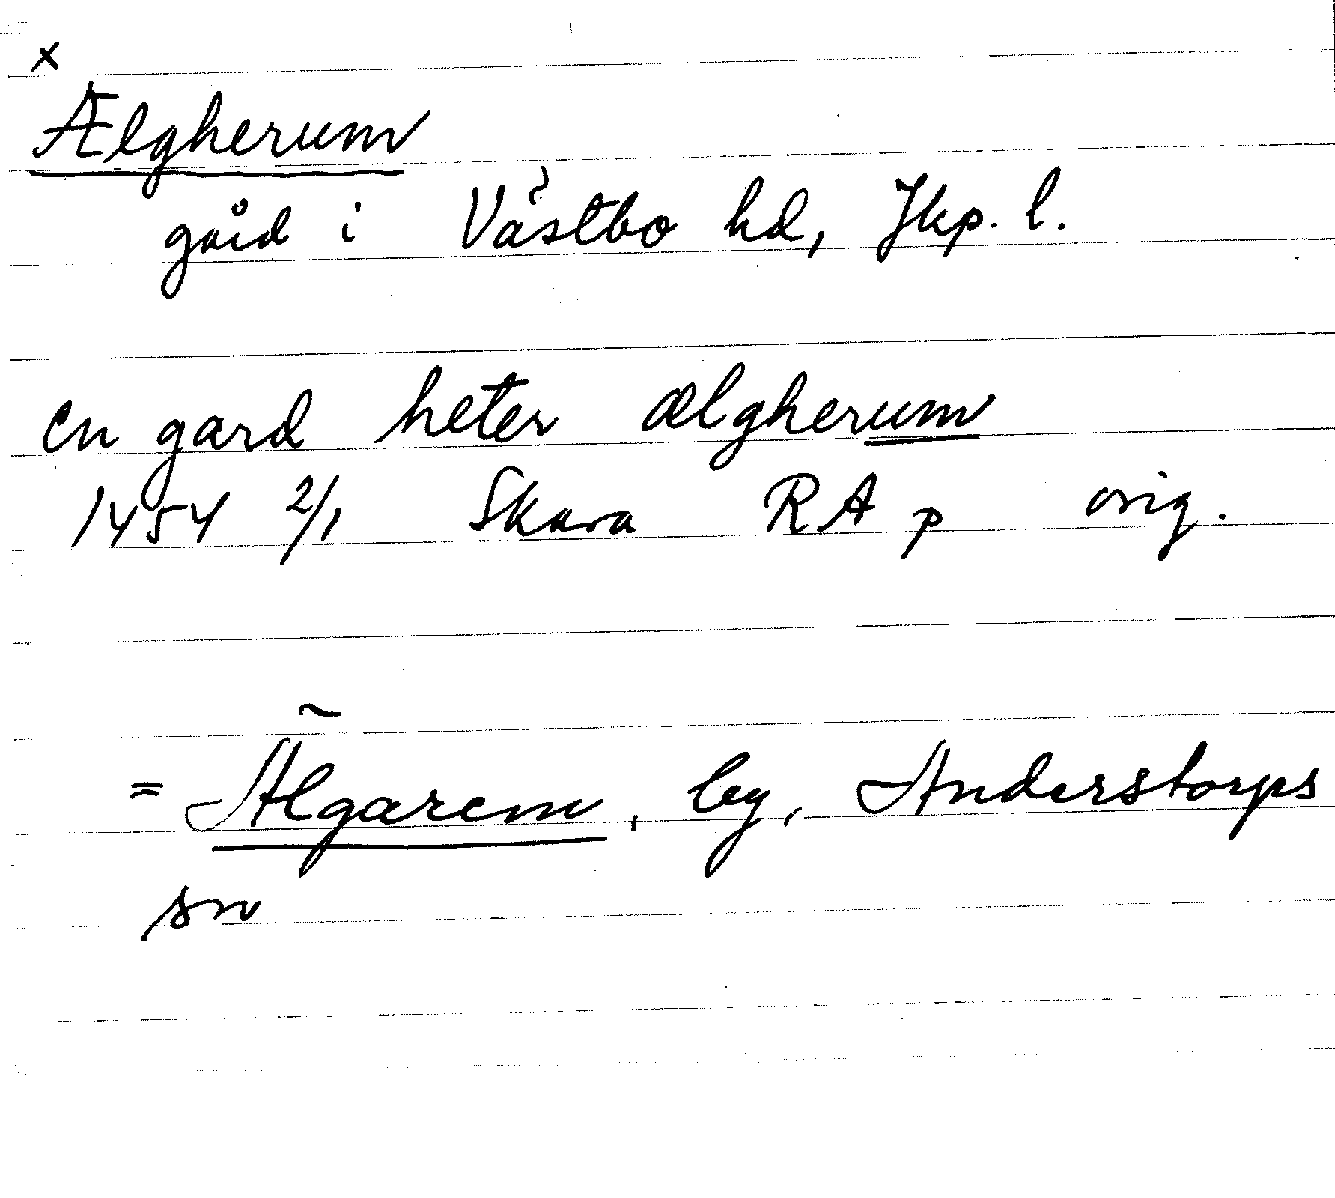 x
Ælgherum
gård i Västbo hd, Jkp. l.
en gard heter ælgherum
1454 2/1 Skara RA p orig.
= Älgarem, by, Anderstorps
sn